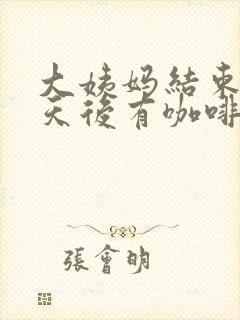 大姨妈結束
天後有咖啡
張會明